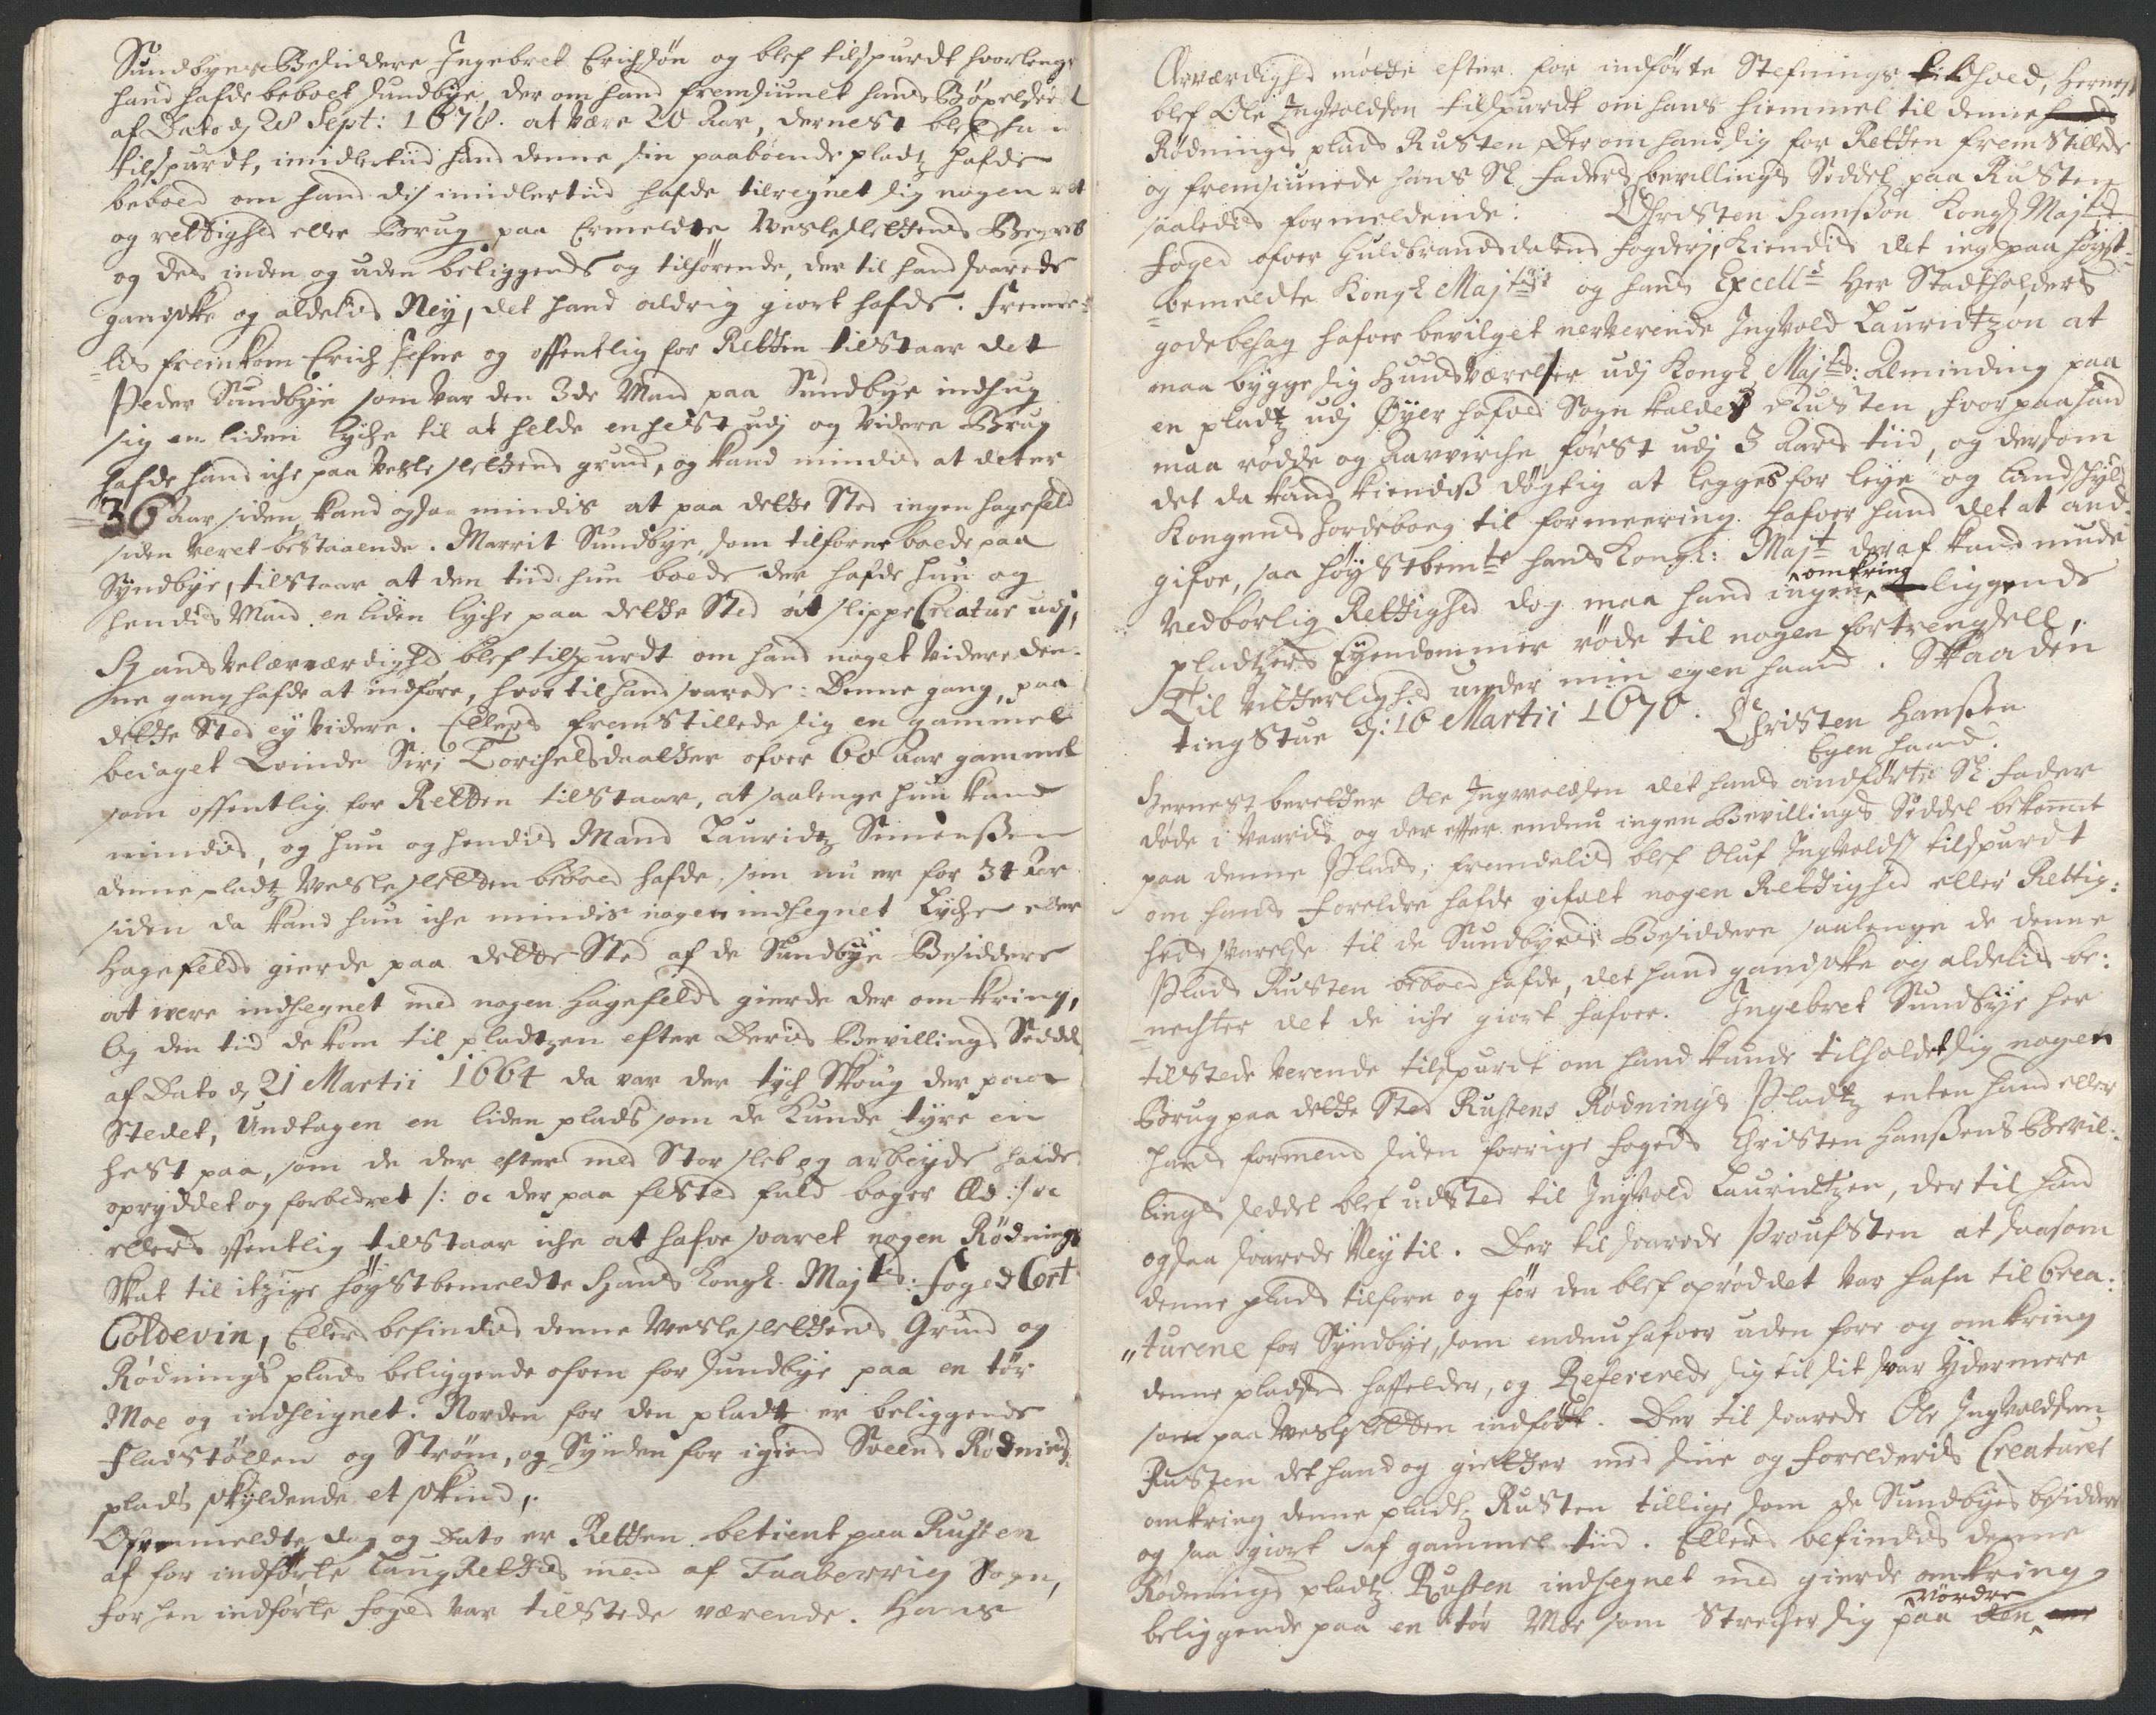 Sundbyes Besiddere Jngebret Erichsøn og blef tilspurdt hvorlenge
hand hafde beboet Sundbye, der om hand fremviiuset hans Böxelseddel
af Dato d. 28 Sept: 1678. at være 20 Aar, dernest blef hand
tilspurdt, imidlertiid hand denne sin paaboende pladtz hafde
beboed om hand dis imidlertiid hafde tilregnet sig nogen ret
og rettighed eller Brug paa Ermeldte Vesleslettens Begreb
og des inden og uden beliggende og tilhörende, der til hand svarede
gandske og aldelis Ney, det hand aldrig giort hafde. Fremde-
=lis fremkom Erich Hefne og offentlig for Retten tilstaar det
Peder Sundbye som var den 3de Mand paa Sundbye indhug
sig en liden lyche til at helde en hest udj og videre Brug
hafde hand iche paa Vesle slettens grund, og kand mindis at det er
=36 Aar siden, kand ogsaa mindis at paa dette Sted ingen hagefeld
siden veret bestaaende. Marrit Sundbye, som tilforne boede paa
Syndbye, tilstaar at den tiid hun boede der hafde hun og
hendis Mand en liden lyche paa dette Sted at slippe Creatur udj,
Hans velærværdighed blef tilspurdt om hand noget videre den-
ne gang hafde at indføre, hvor til hand svarede: Denne gang, paa
dette Sted ey videre. Ellers fremstillede sig en gammel
bedaget Qvinde Siri Torchelsdaatter ofver 60 Aar gammel
som offentlig for Retten tilstaar, at saalenge hun kand
mindis, og hun og hendis Mand Lauridtz Simenssen
denne pladtz Vesle sletten beboed hafde, som nu er for 34 Aar
siden da kand hun iche mindis nogen indhegnet Lyche eller
Hagefelds gierde paa dette Sted af de Sundbye Besiddere
at vere indhegnet med nogen Hagefelds gierde der omkring,
Og den tiid de kom til pladtzen efter deris Bevillings Seddel
af Dato d. 21 Martii 1664 da var der tych Skoug der paa
Stedet, Undtagen en liden plads som de Kunde tyre en
hest paa, som de der efter med Stor sleb og arbeyde hafde
opryddet og forbedret /: oc der paa fested fuld boger Æd :/ oc
ellers offentlig tilstaar iche at hafve svaret nogen Rødnings
Skat til itzige höystbemeldte Hans Kongl. Majts: foged Cort
Coldevin, Ellers befindis denne Vesleslettens Grund og
Rødnings plads beliggende ofven for Sundbye paa en tör
Moe og indheignet. Norden for den pladtz er beliggende
Fladstøllen og Strøm, og Synden for igien Sveens Rødnings
plads skyldende et skind,
Ofvenmeldte dag og Dato er Retten betient paa Rusten
af for indførte LaugRettis mend af Faaberrig Sogn,
forhen indførte foged var tilstede værende. Hans
Ærværdighed mötte efter for indførte Stefnings tilhold, hernest
blef Ole Jngvoldsen tilspurdt om hans hiemmel til denne
Rødnings plads Rusten, Der om hand sig for Retten fremstillede
og fremviisede hans Sl. faders bevillings Seddel paa Rusten
saaledis formeldende: Christen Hanssøn Kongl. Majts
foged ofver Guldbrandsdalens fogderj, Kiendis det ieg paa høyst-
=bemeldte Kongl. Majts og hans Excells Her Stadtholders
gode behag hafver bevilget nerverende Jngvold Lauridtzøn at
maa bygge sig Huusverelser udj Kongl. Majts: Alminding paa
en pladtz udj Øyer hofved Sogn kaldes Rusten, hvorpaa hand
maa rødde og Aarvirche først udj 3 Aars tiid, og dersom
det da kand kiendis dygtig at legges for leye og landskyld
Kongens Jordeboeg til formeering. hafver hand det at and-
gifve, saa höystbemte hans Kongl: Majt deraf kand nyde
vedbørlig Rettighed dog maa hand ingen omkring liggende
pladtzers Eyendommer röde til nogen fortrengsell,
Til Vitterlighed under min egen haand. Skaaden
tingstue d: 16 Martii 1670. Christen Hanssen
Egen haand.
Hernest beretter Ole Jngvoldsen det hans andførte Sl. fader
døde i Vaaris og der efter endnu ingen Bevillings Seddel bekommet
paa denne Plads; fremdelis blef Oluf Jngvolds: tilspurdt
om hans Foreldre hafde gifvet nogen Rettighed eller Rettig:
heds svarelse til de Sundbyes Besiddere saalenge de denne
Plads Rusten beboed hafde, det hand gandske og aldelis be:
=nechter det de iche giort hafver. Jngebret Sundbye her
tilstede verende tilspurdt om hand kunde tilholdet sig nogen
Brug paa dette Sted Rustens Rødnings Pladtz enten hand eller
hans formend siden forrige fogeds Christen Hanssens Bevil:
lings seddel blef udsted til Jngvold Lauridtzen, der til hand
ogsaa svarede Ney til. Der til svarede Proufsten at saasom
denne plads tilforn og för den blef oprøddet var hafn til Crea:
"turene for Syndbye, som endnu hafver uden fore og omkring
denne pladsen haffelder, og Refererede sig til sit svar ydermere
som paa Vesle sletten indført. Der til svarede Ole Jngvoldsen
Rusten det hand og gietter med sine og foreldris Creaturer
omkring denne pladtz Rusten tillige som de Sundbyes besiddere
og saa giort af gammel tiid. Ellers befindis denne
Rødnings pladtz Rusten indhegnet med gierde omkring,
beliggende paa en tør Moe som Strecher sig paa den nordre